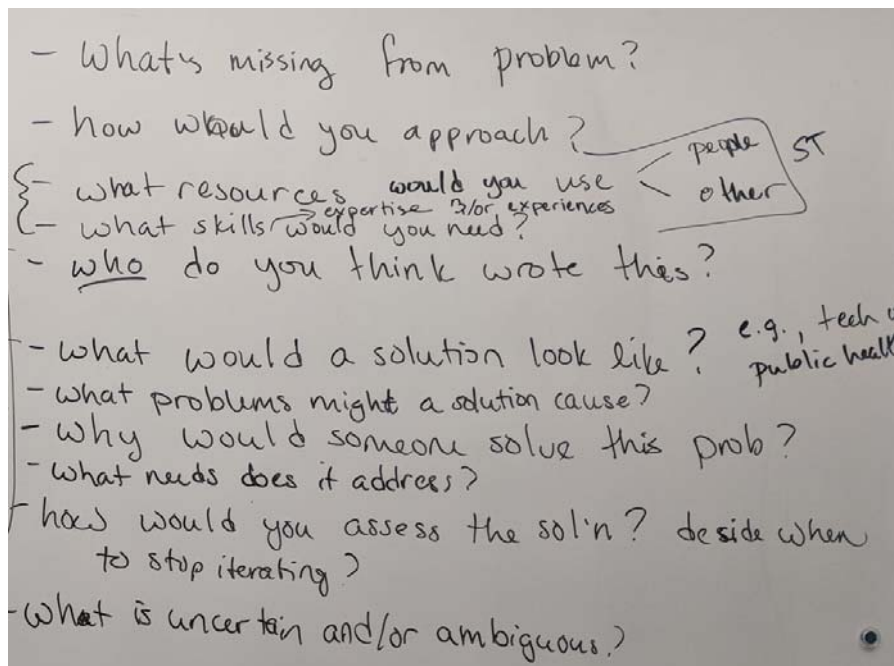 - What's missing from problem?
- how would you approach?
people
ST
- what resources would you use
other
expertise &/or experiences
- what skills would you need?
- who do you think wrote this?
- what would a solution look like? e.g., tech
public health
- what problems might a solution cause?
- Why would someone solve this prob?
- what needs does it address?
- how would you assess the sol'n? deside when
to stop iterating?
- What is uncertain and/or ambiguous?